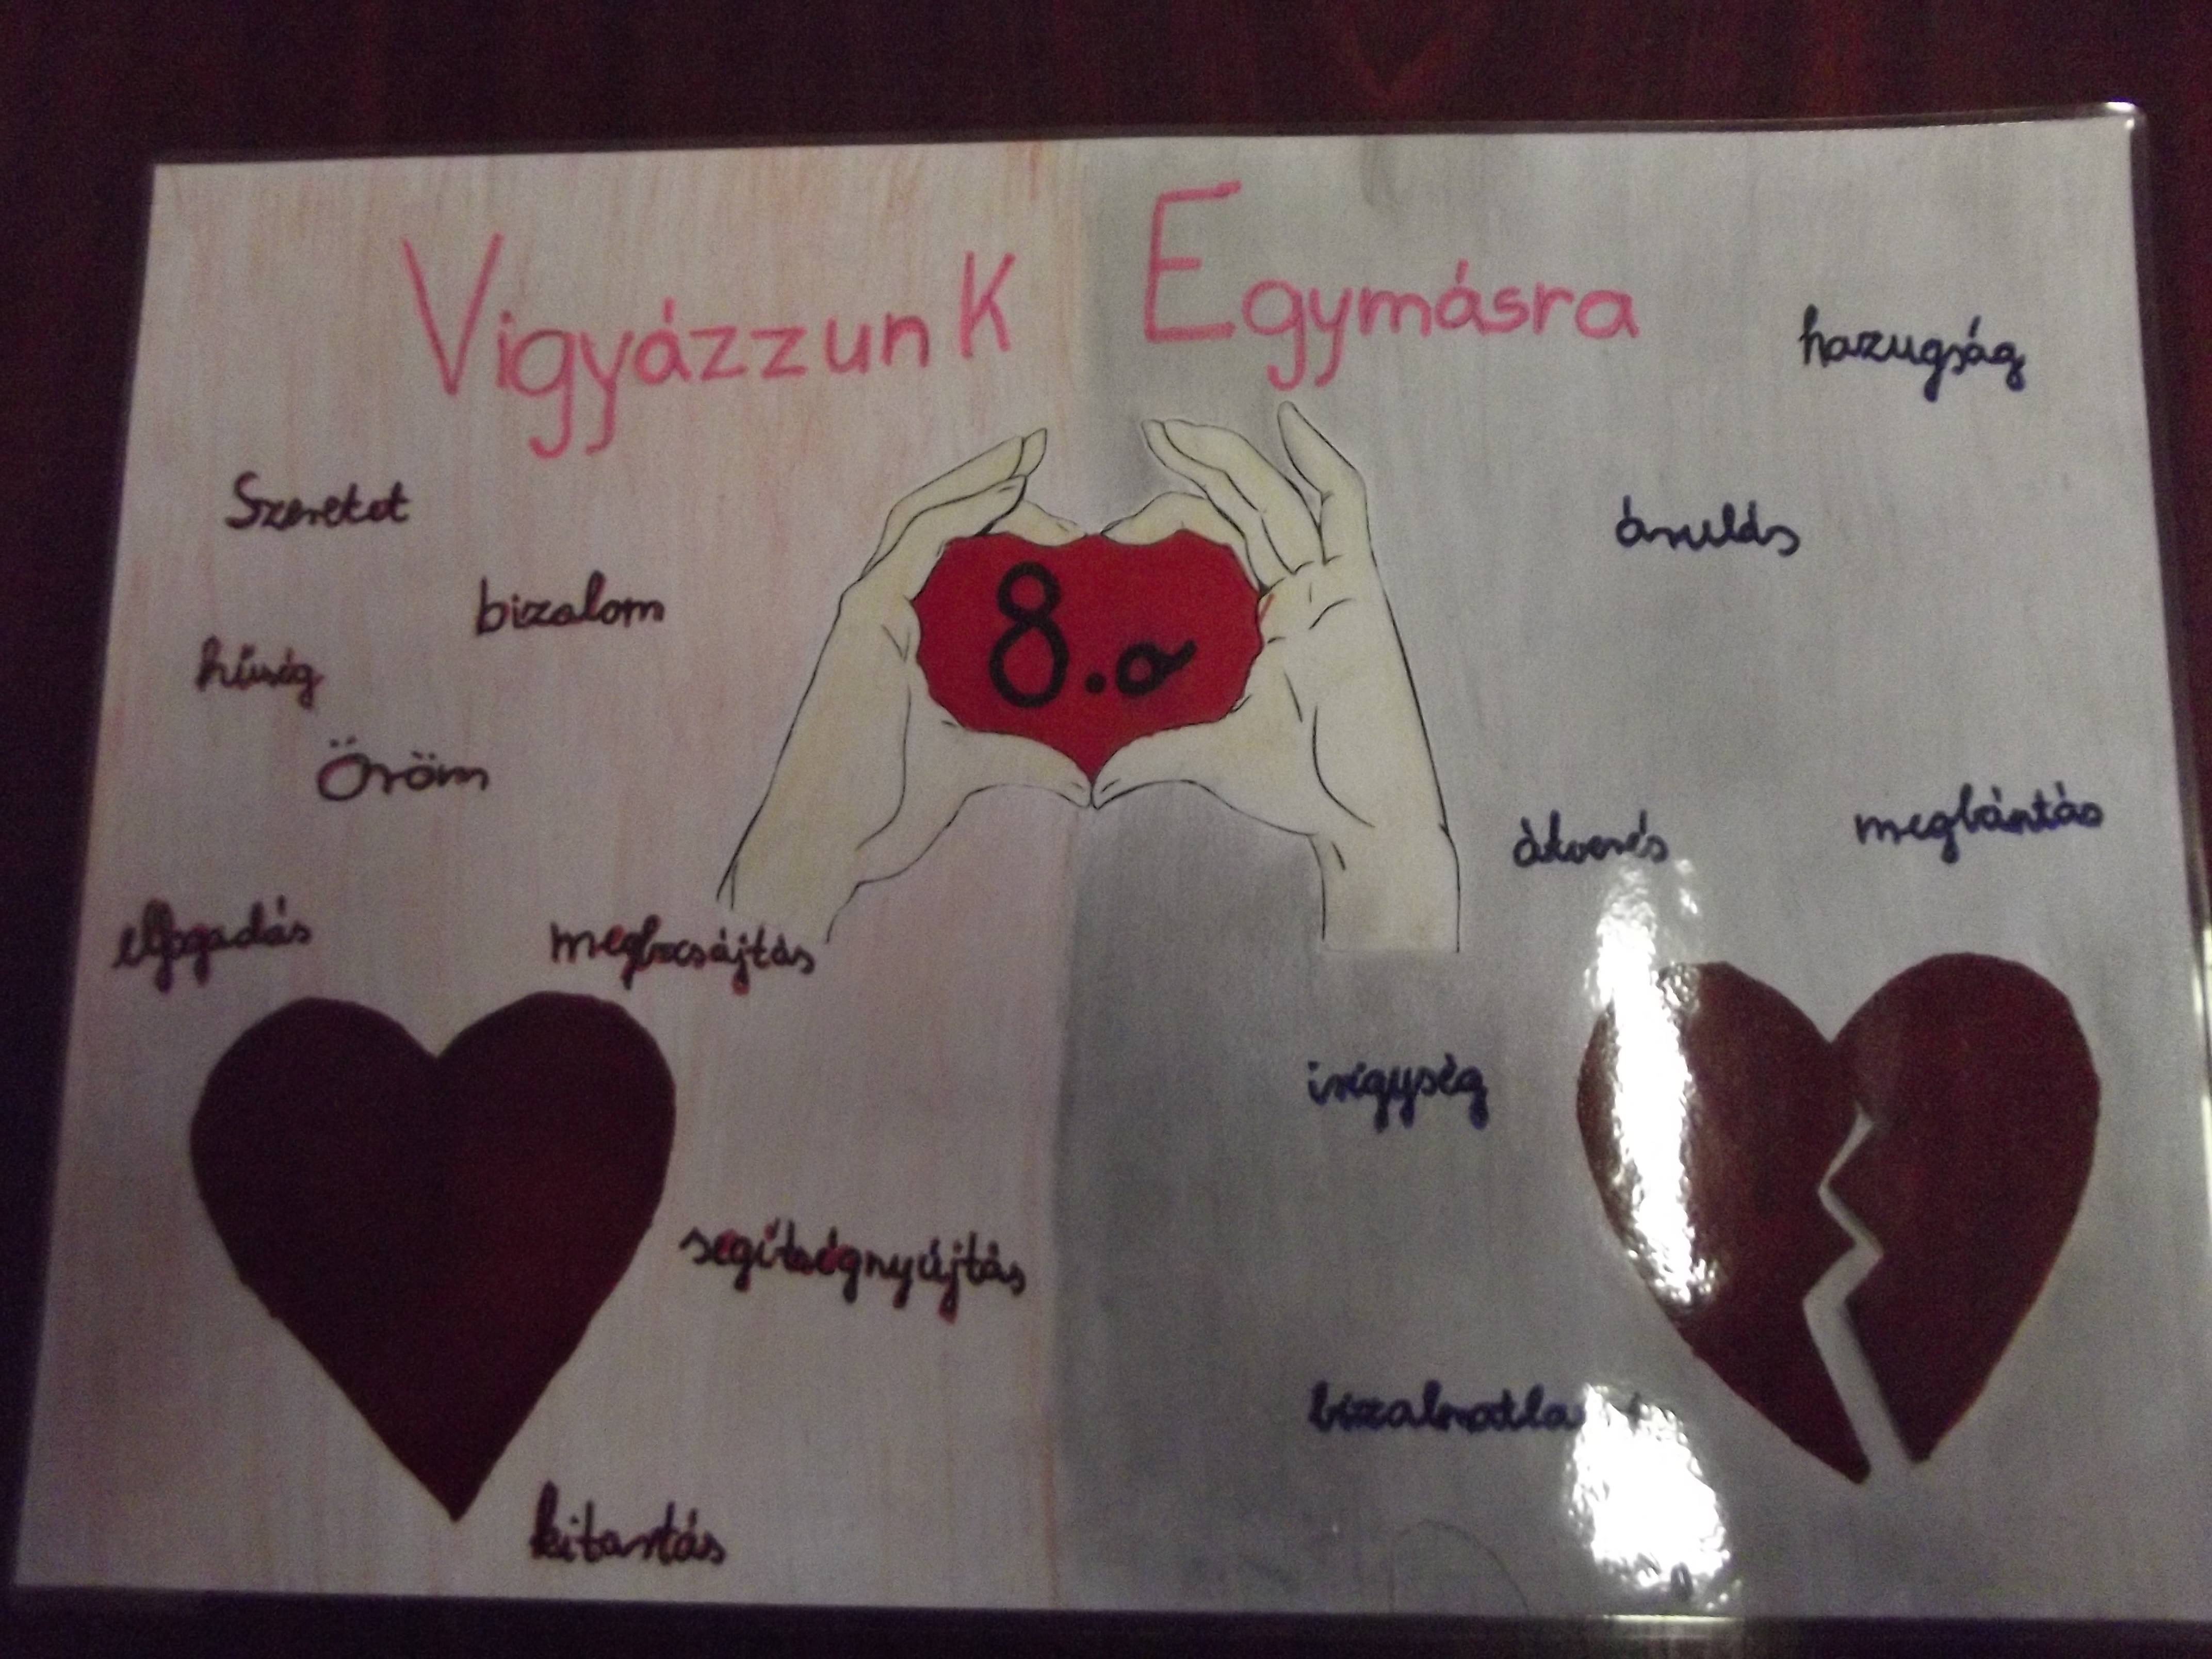 Vigyázzunk Egymásra
hazugság
Szeretet
árulás
bizalom
hűség
8.a
Öröm
átverés
megbántás
elfogadás
megbocsájtás
irígység
segítségnyújtás
kitartás